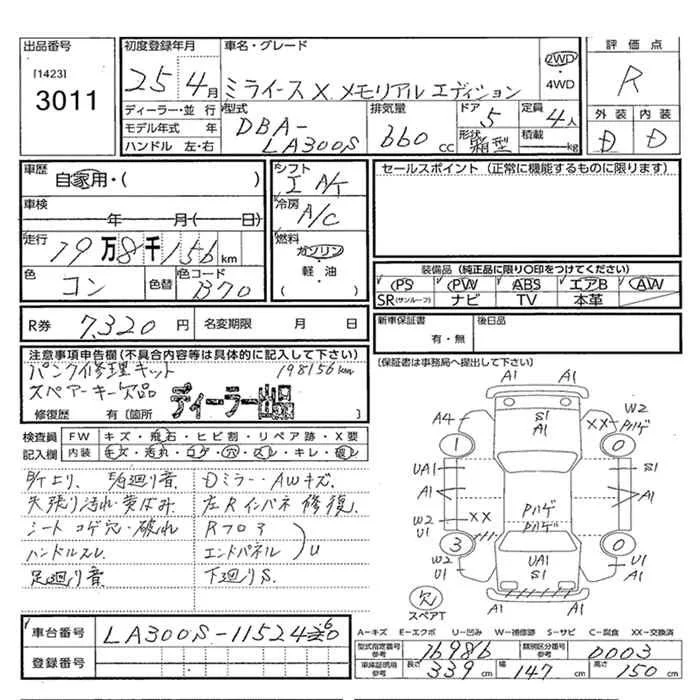 出品番号
[1423]
3011
初度登録年月
25年 4月
車名・グレード
ミライース X メモリアル エディション
2WD
・
4WD
評価点
R
外装 内装
D D
ディーラー・並行
モデル年式 年
ハンドル 左・右
型式
DBA-
LA300S
排気量
660 cc
ドア 5
形状 箱型
定員 4人
積載 kg
車歴
自家用・( )
車検
年 月( 日)
走行
19万8千156km
色
コン
色替
色コード
B70
シフト
I A/T
冷房
A/C
燃料
ガソリン
・
軽・油
( )
セールスポイント (正常に機能するものに限ります)
装備品 (純正品に限り〇印をつけてください)
PS PW ABS エアB AW
SR(サンルーフ) ナビ TV 本革
R券 7,320 円 名変期限 月 日
新車保証書
有・無
後日品
注意事項申告欄(不具合内容等は具体的に記入して下さい)
パンク修理キット 198156km
スペアーキー欠品
ディーラー出品
修復歴 有(箇所 )
(保証書は事務局へ提出して下さい)
検査員
記入欄
FW キズ・飛石・ヒビ割・リペア跡・X要
内装 キズ・汚れ・コゲ・穴・スレ・キレ・破レ
天張り汚れ・黄ばみ
シート コゲ穴・破れ
ハンドルスレ
足廻り音
Dミラー・AWキズ
左Rインパネ 修復
Rフロア
エンドパネル
U
下廻りS
A1 A1
S1
A1
A4
XX
W2
ハゲ
1
0
UA1
S1
A1
A1
W2
U1
XX
ハゲ
ハゲ
3
0
W2
U1
U1
A1
UA1
S1
A1
欠
スペアT
車台番号 LA300S-1152460
登録番号
A-キズ E-エクボ U-凹み W-補修跡 S-サビ C-腐食 XX-交換済
型式指定番号
参考
16986
類別区分番号
参考
0003
車庫証明用
参考
長さ 339cm 幅 147cm 高さ 150cm